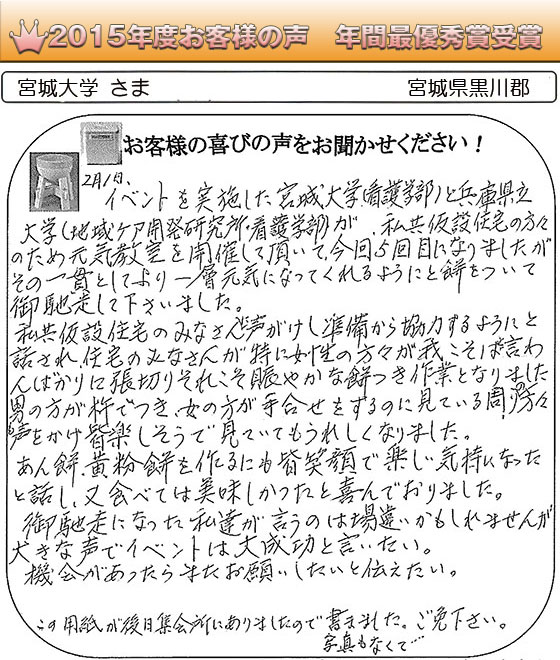 2015年度お客様の声　年間最優秀賞受賞
宮城大学 さま　宮城県黒川郡
お客様の喜びの声をお聞かせください！
2月1日、
イベントを実施した宮城大学(看護学部)と兵庫県立
大学(地域ケア開発研究所・看護学部)が、私共仮設住宅の方々
のため元気教室を開催して頂いて、今回5回目になりましたが
その一貫としてより一層元気になってくれるようにと餅をついて
御馳走して下さいました。
私共仮設住宅のみなさんに声がけし準備から協力するようにと
話され、住宅のみなさんが特に女性の方々が我こそはと言わ
んばかりに張切りそれこそ賑やかな餅つき作業となりました
男の方が杵でつき、女の方が手合せをするのに見ている周りの方々
声をかけ皆楽しそうで見ていてもうれしくなりました。
あん餅、黄粉餅を作るにも皆笑顔で楽しい気持になった
と話し、又食べては美味しかったと喜んでおりました。
御馳走になった私達が言うのは場違いかもしれませんが
大きな声でイベントは大成功と言いたい。
機会があったらまたお願いしたいと伝えたい。
この用紙が後日集会所にありましたので書きました。ご免下さい。
写真もなくて…